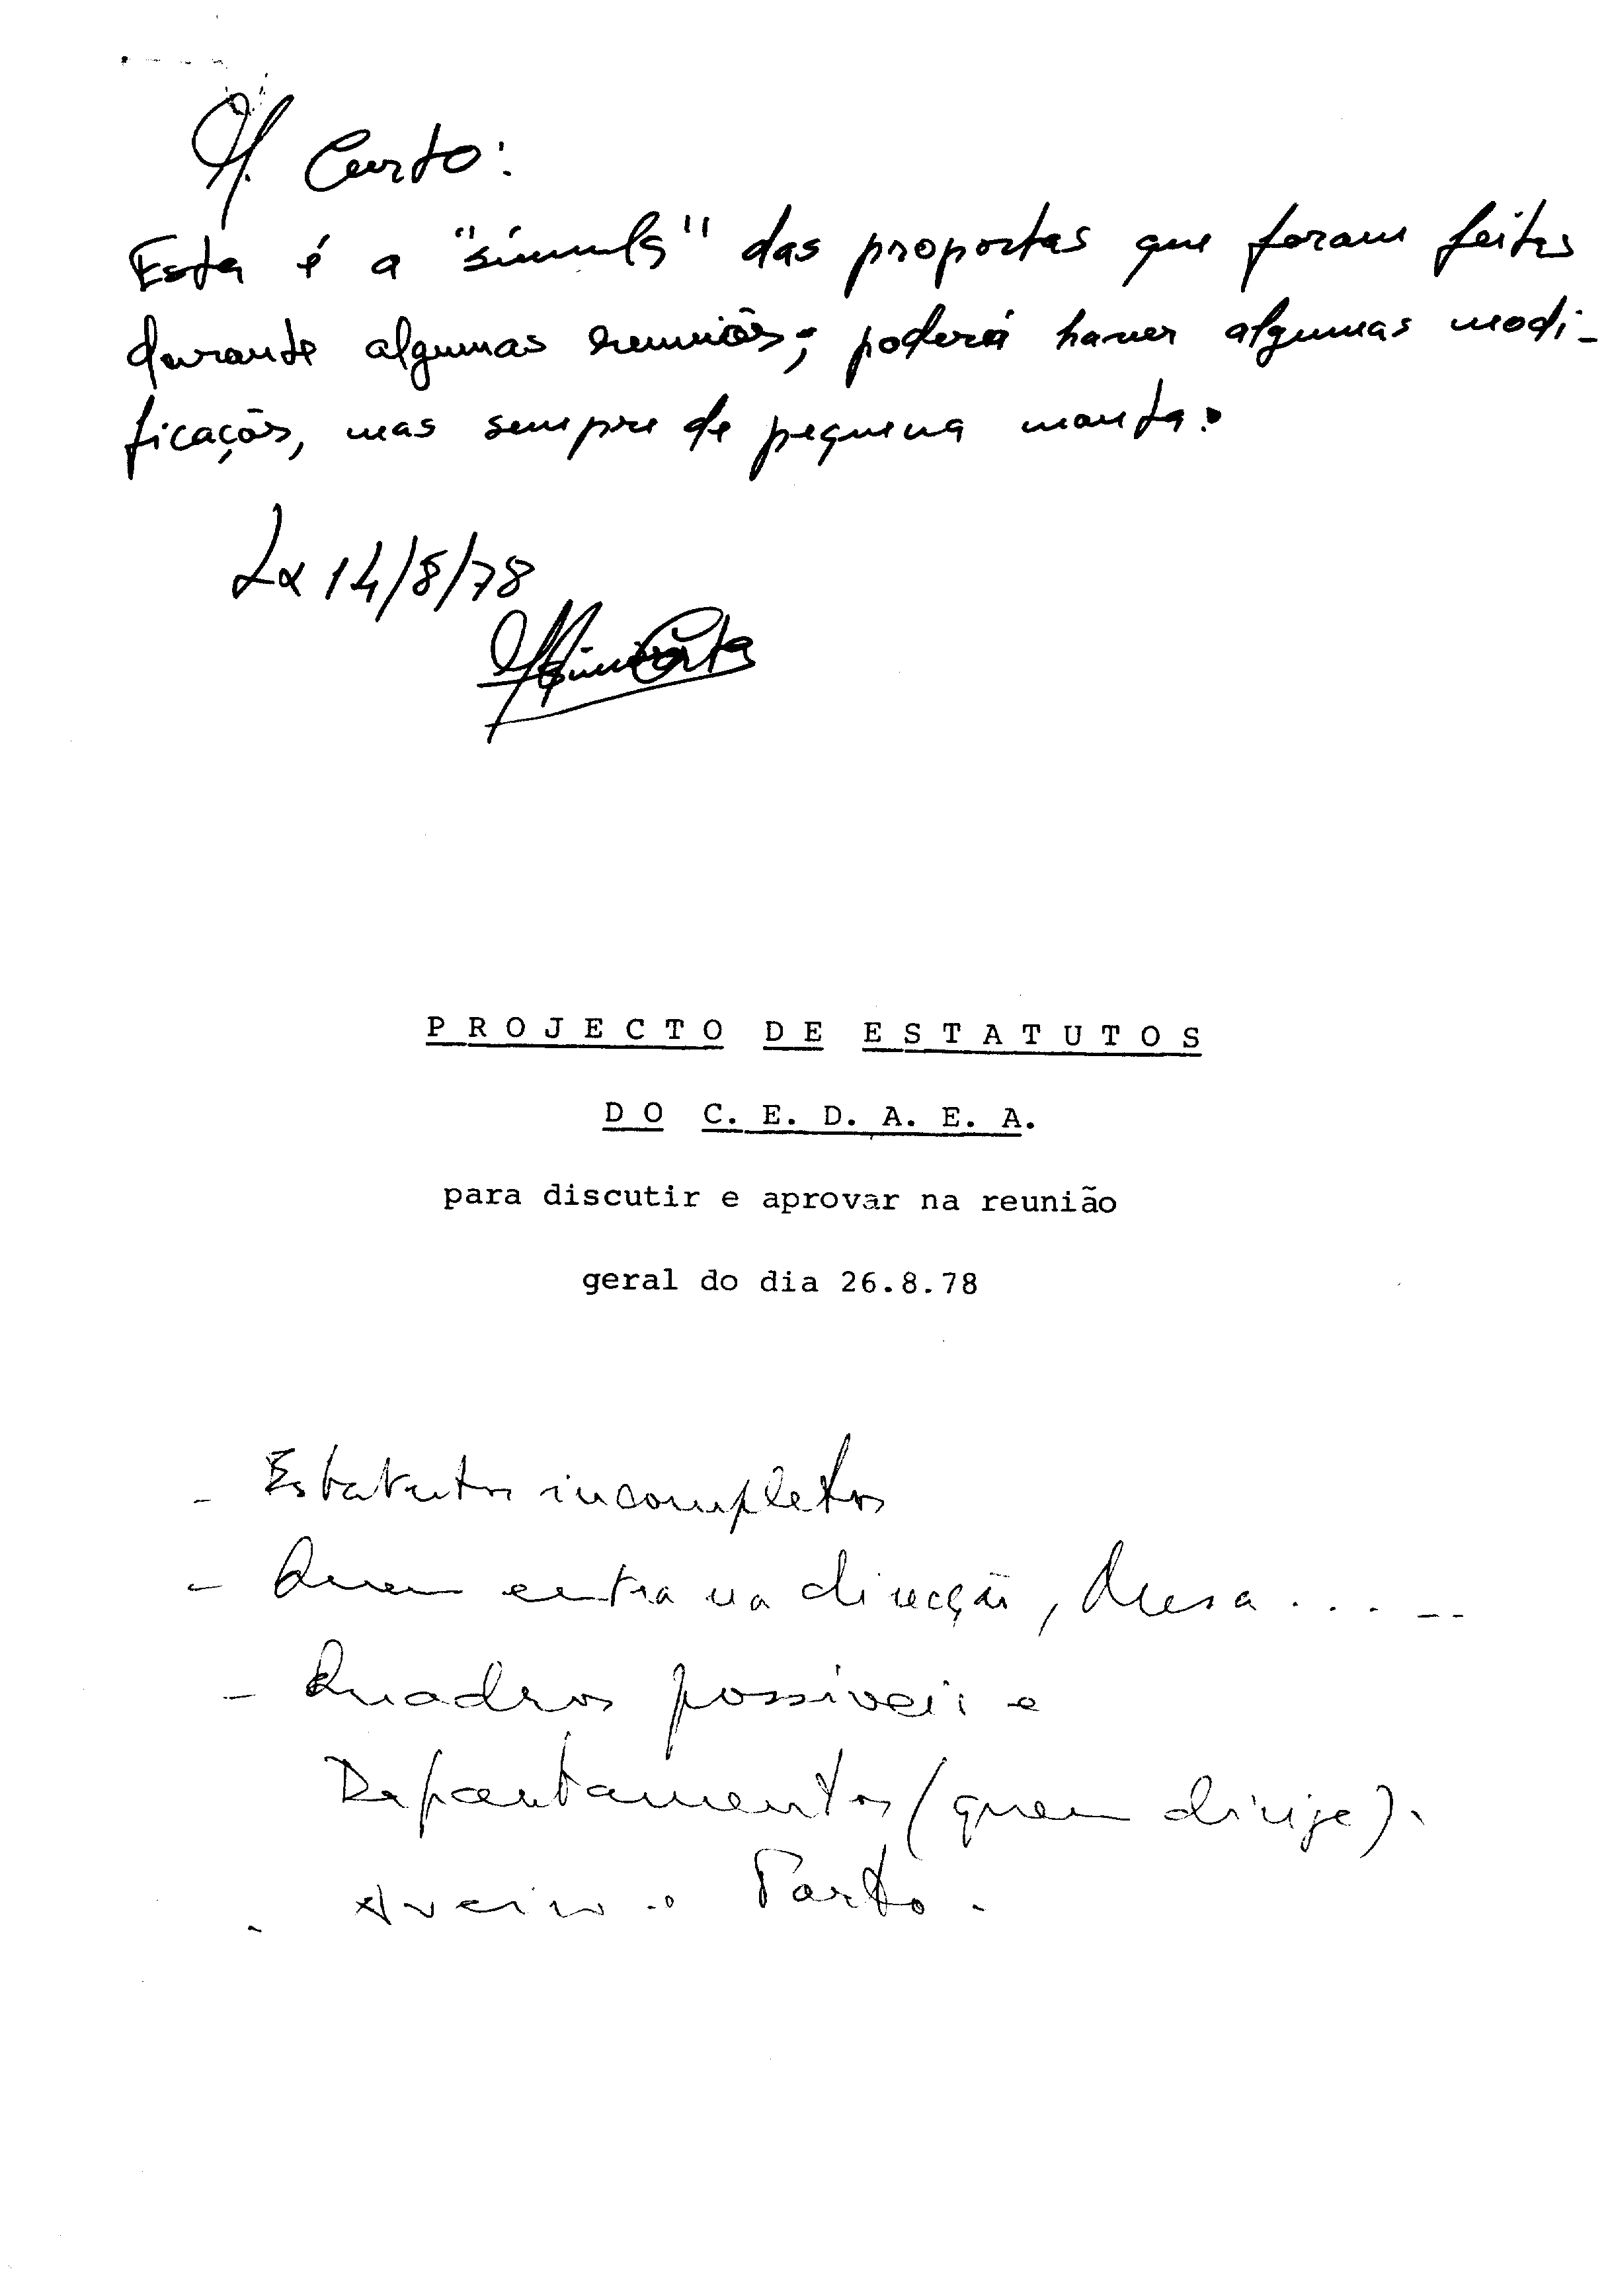 M. Curto:
Esta é a "súmula" das propostas que foram feitas
durante algumas reuniões; poderá haver algumas modi-
ficações, mas sempre de pequena monta.
Lx 14/8/78
PROJECTO DE ESTATUTOS
DO C. E. D. A. E. A.
para discutir e aprovar na reunião
geral do dia 26.8.78
- Estatutos incompletos
- Quem entra na direcção, Mesa ... --
- Quadros possíveis e
Departamentos (quem dirige).
- Aveiro . Porto .